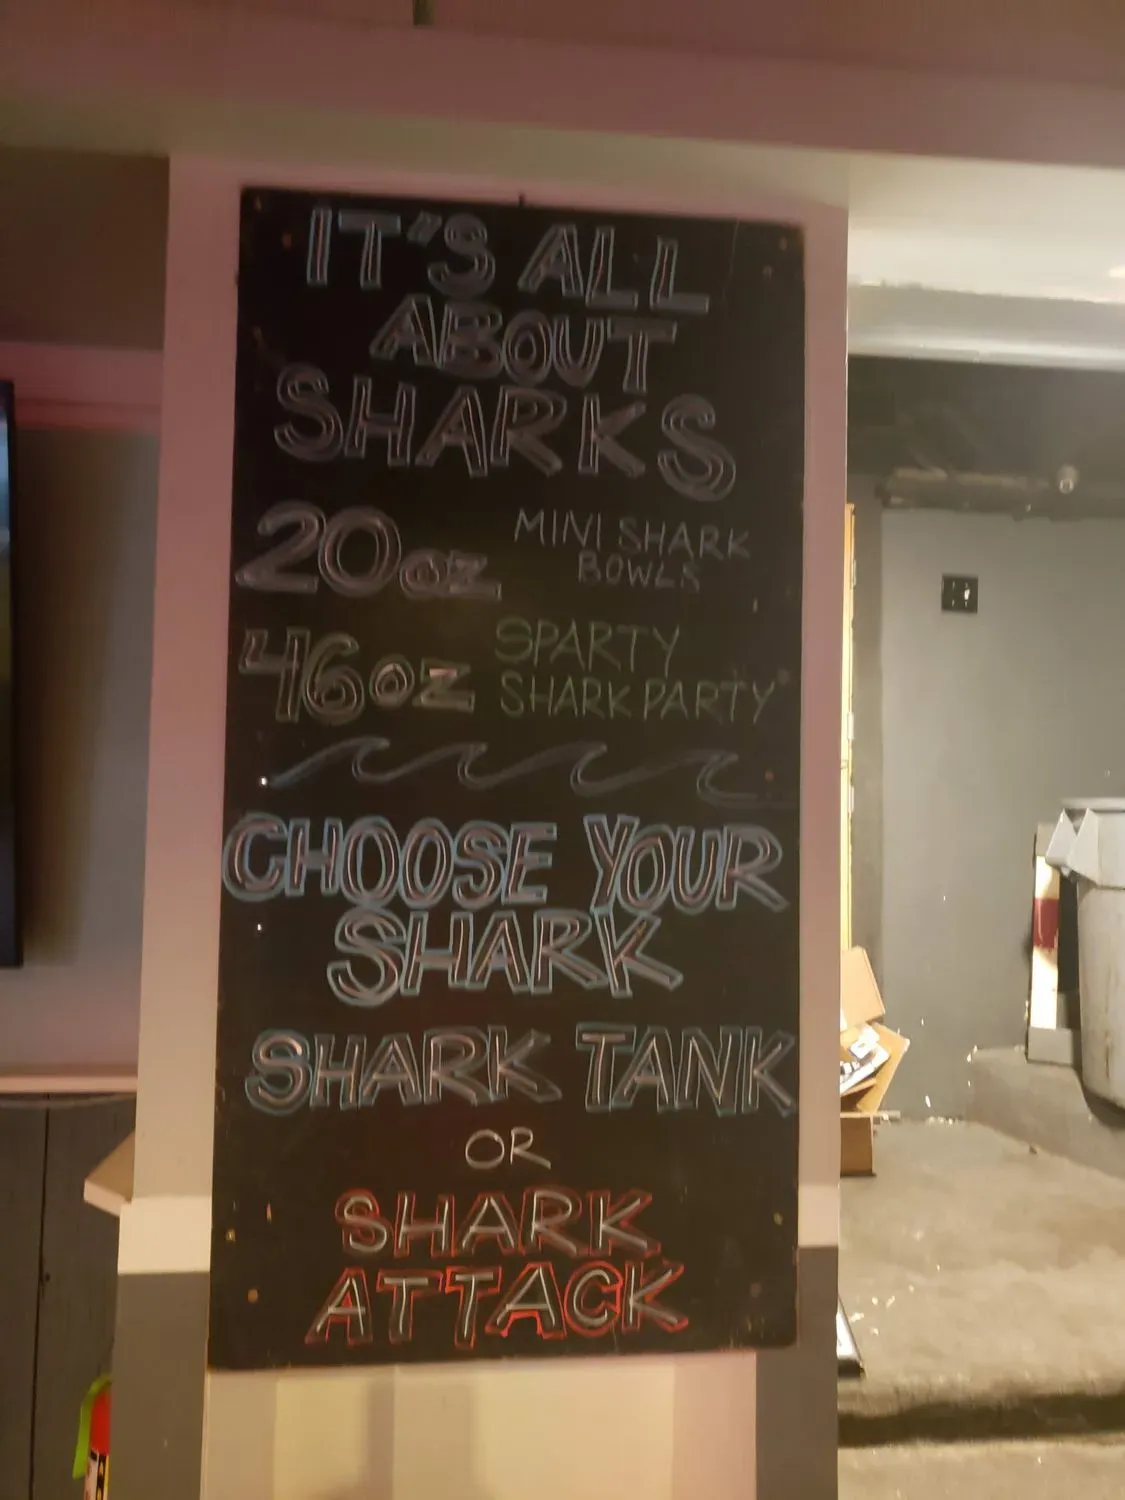 IT'S ALL
ABOUT
SHARKS
20oz MINI SHARK
BOWLS
46oz SPARTY
SHARK PARTY
CHOOSE YOUR
SHARK
SHARK TANK
OR
SHARK
ATTACK